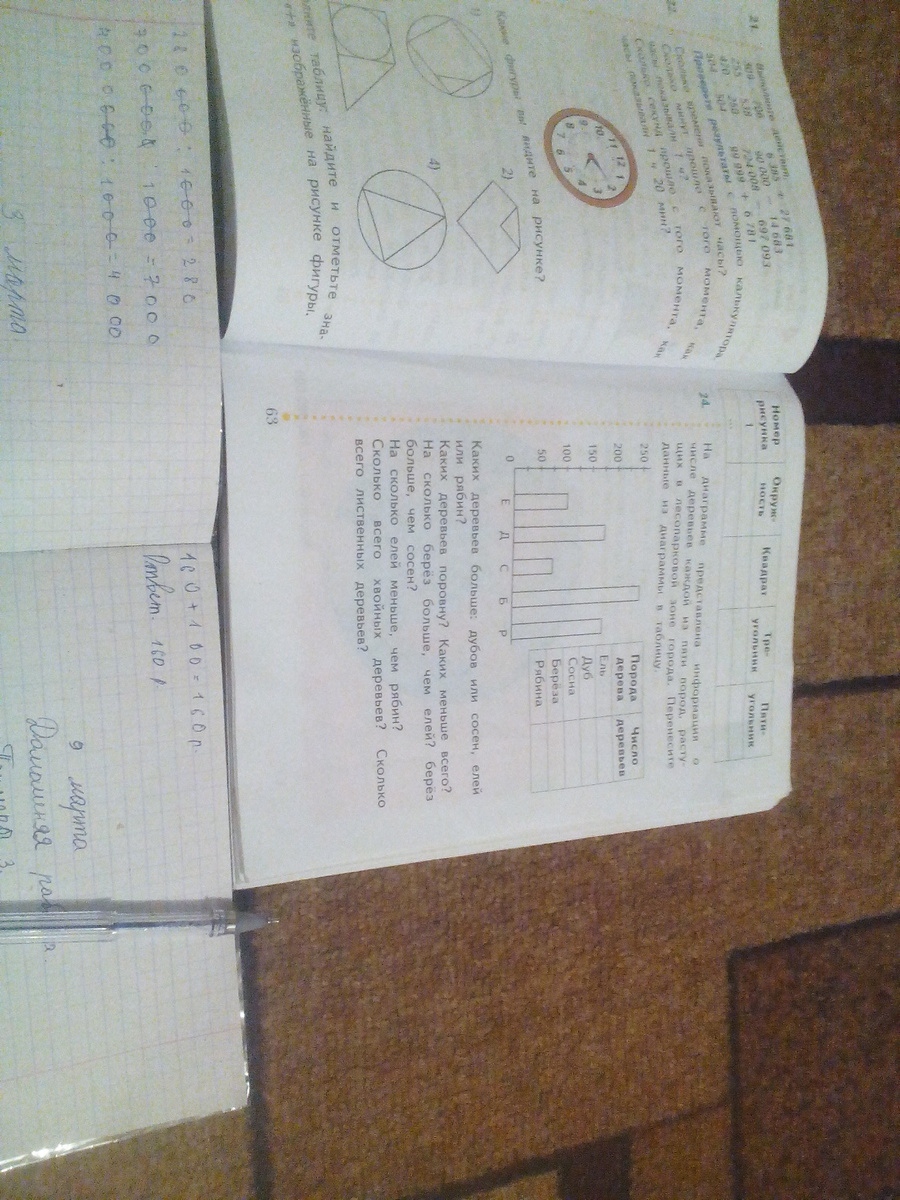 21. Выполните действия:
6 385 + 27 681
60 000 − 14 683
724 008 − 697 093
99 999 + 6 781
Проверьте результаты с помощью калькулятора.
Сколько времени показывают часы?
Сколько минут прошло с того момента, как
часы показывали 1 ч?
Сколько секунд прошло с того момента, как
часы показывали 1 ч 20 мин?
10 11 12 1 2 3 4 5 6 7 8 9
Какие фигуры вы видите на рисунке?
1)
2)
4)
таблицу: найдите и отметьте зна-
изображённые на рисунке фигуры.
Номер
рисунка
Окруж-
ность
Квадрат
Тре-
угольник
Пяти-
угольник
1
...
24.
На диаграмме представлена информация о
числе деревьев каждой из пяти пород, расту-
щих в лесопарковой зоне города. Перенесите
данные из диаграммы в таблицу.
250
200
150
100
50
0
Е Д С Б Р
Порода
дерева
Число
деревьев
Ель
Дуб
Сосна
Берёза
Рябина
Каких деревьев больше: дубов или сосен, елей
или рябин?
Каких деревьев поровну? Каких меньше всего?
На сколько берёз больше, чем елей? берёз
больше, чем сосен?
На сколько елей меньше, чем рябин?
Сколько всего хвойных деревьев? Сколько
всего лиственных деревьев?
63
280000 : 1000 = 280
1000 = 7000
: 1000 = 4000
3 марта
160 + 100 = 160 г.
Ответ: 160 г.
9 марта
Домашняя